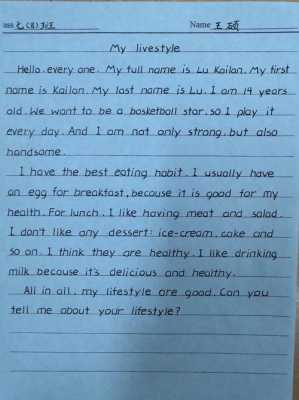 ass 七(8)班 Name 王硕
My livestyle
Hello. every one. My full name is Lu Kailan. My first
name is Kailan. My last name is Lu. I am 14 years
old. We want to be a basketball star. so I play it
every day. And I am not only strong. but also
handsome.
I have the best eating habit. I usually have
an egg for breakfast, because it is good for my
health. For lunch. I like having meat and salad.
I don't like any dessert: ice-cream. cake and
so on. I think they are healthy. I like drinking
milk because it's delicious and healthy.
All in all. my lifestyle are good. Can you
tell me about your lifestyle?